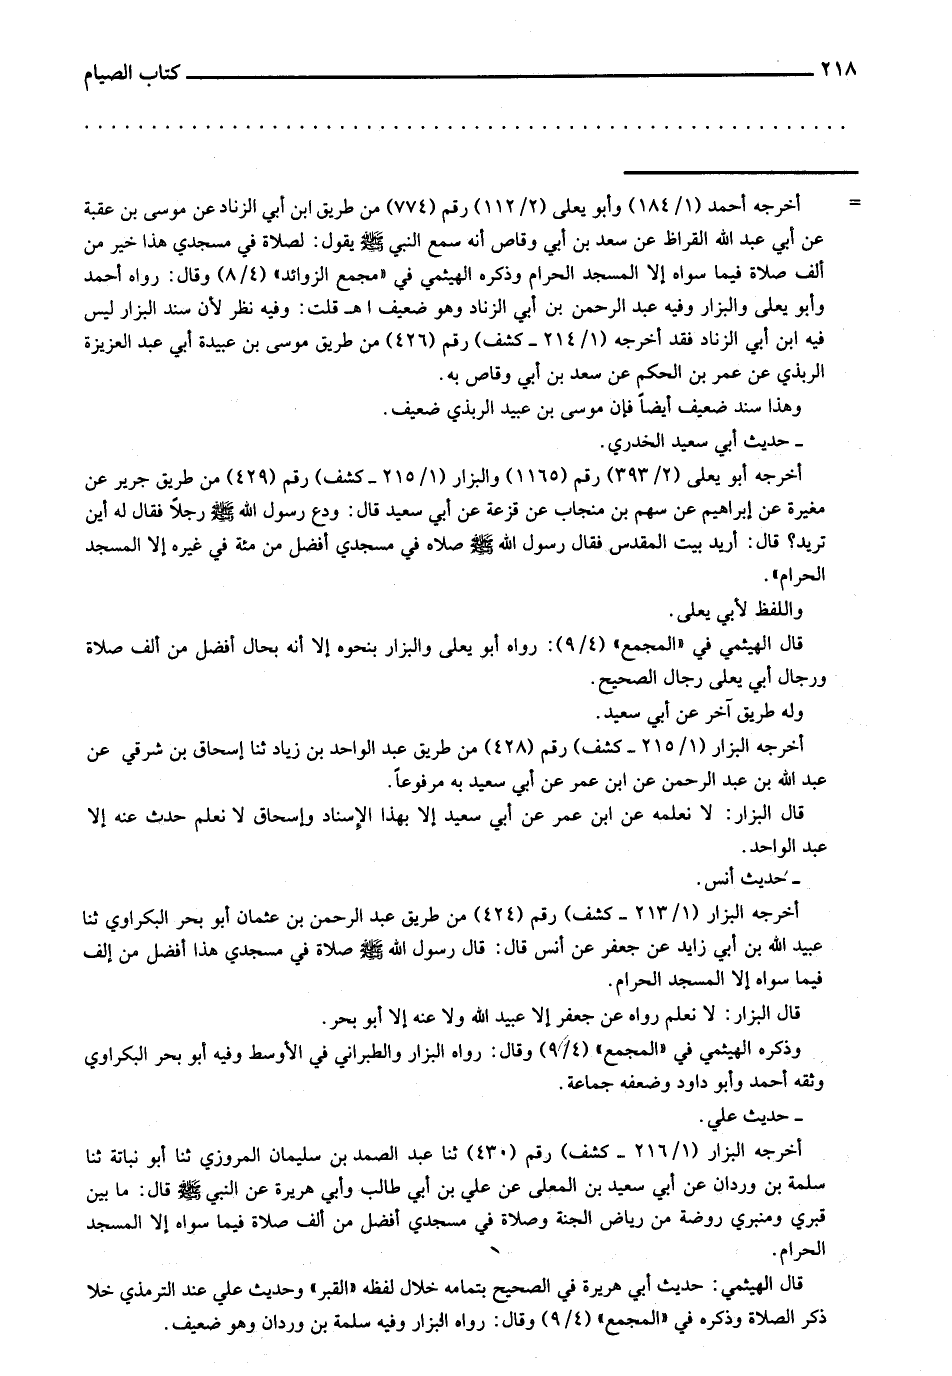 ٢١٨ كتاب الصيام
= أخرجه أحمد (١/ ١٨٤) وأبو يعلى (٢/ ١١٢) رقم (٧٧٤) من طريق ابن أبي الزناد عن موسى بن عقبة
عن أبي عبد الله القراظ عن سعد بن أبي وقاص أنه سمع النبي ﷺ يقول: لصلاة في مسجدي هذا خير من
ألف صلاة فيما سواه إلا المسجد الحرام وذكره الهيثمي في «مجمع الزوائد» (٤/ ٨) وقال: رواه أحمد
وأبو يعلى والبزار وفيه عبد الرحمن بن أبي الزناد وهو ضعيف ا هـ قلت: وفيه نظر لأن سند البزار ليس
فيه ابن أبي الزناد فقد أخرجه (١/ ٢١٤ ـ كشف) رقم (٤٢٦) من طريق موسى بن عبيدة أبي عبد العزيزة
الربذي عن عمر بن الحكم عن سعد بن أبي وقاص به.
وهذا سند ضعيف أيضاً فإن موسى بن عبيد الربذي ضعيف.
ـ حديث أبي سعيد الخدري.
أخرجه أبو يعلى (٢/ ٣٩٣) رقم (١١٦٥) والبزار (١/ ٢١٥ ـ كشف) رقم (٤٢٩) من طريق جرير عن
مغيرة عن إبراهيم عن سهم بن منجاب عن قزعة عن أبي سعيد قال: ودع رسول الله ﷺ رجلاً فقال له أين
تريد؟ قال: أريد بيت المقدس فقال رسول الله ﷺ صلاه في مسجدي أفضل من مئة في غيره إلا المسجد
الحرام».
واللفظ لأبي يعلى.
قال الهيثمي في «المجمع» (٤/ ٩): رواه أبو يعلى والبزار بنحوه إلا أنه بحال أفضل من ألف صلاة
ورجال أبي يعلى رجال الصحيح.
وله طريق آخر عن أبي سعيد.
أخرجه البزار (١/ ٢١٥ ـ كشف) رقم (٤٢٨) من طريق عبد الواحد بن زياد ثنا إسحاق بن شرقي عن
عبد الله بن عبد الرحمن عن ابن عمر عن أبي سعيد به مرفوعاً.
قال البزار: لا نعلمه عن ابن عمر عن أبي سعيد إلا بهذا الإسناد وإسحاق لا نعلم حدث عنه إلا
عبد الواحد.
ـ حديث أنس.
أخرجه البزار (١/ ٢١٣ ـ كشف) رقم (٤٢٤) من طريق عبد الرحمن بن عثمان أبو بحر البكراوي ثنا
عبيد الله بن أبي زايد عن جعفر عن أنس قال: قال رسول الله ﷺ صلاة في مسجدي هذا أفضل من إلف
فيما سواه إلا المسجد الحرام.
قال البزار: لا نعلم رواه عن جعفر إلا عبيد الله ولا عنه إلا أبو بحر.
وذكره الهيثمي في «المجمع» (٤/ ٩) وقال: رواه البزار والطبراني في الأوسط وفيه أبو بحر البكراوي
وثقه أحمد وأبو داود وضعفه جماعة.
ـ حديث علي.
أخرجه البزار (١/ ٢١٦ ـ كشف) رقم (٤٣٠) ثنا عبد الصمد بن سليمان المروزي ثنا أبو نباتة ثنا
سلمة بن وردان عن أبي سعيد بن المعلى عن علي بن أبي طالب وأبي هريرة عن النبي ﷺ قال: ما بين
قبري ومنبري روضة من رياض الجنة وصلاة في مسجدي أفضل من ألف صلاة فيما سواه إلا المسجد
الحرام.
قال الهيثمي: حديث أبي هريرة في الصحيح بتمامه خلال لفظه «القبر» وحديث علي عند الترمذي خلا
ذكر الصلاة وذكره في «المجمع» (٤/ ٩) وقال: رواه البزار وفيه سلمة بن وردان وهو ضعيف.